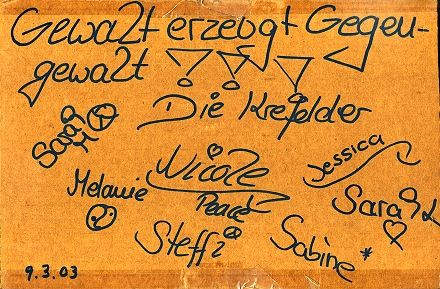 Gewalt erzeugt Gegen-
gewalt
Die Krefelder
Sarah
Nicole
Jessica
Melanie
Peace
Sarah L
Steffi
Sabine
9.3.03